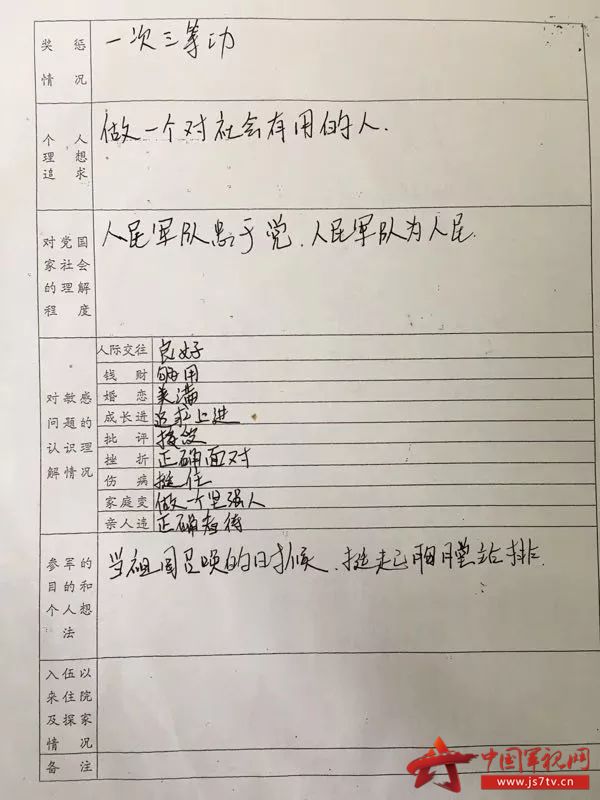 奖惩
情况
一次三等功
个人
理想
追求
做一个对社会有用的人.
对党国
家社会
的理解
程度
人民军队忠于党、人民军队为人民.
对敏感
问题的
认识理
解情况
人际交往 良好
钱财 够用
婚恋 美满
成长进 追求上进
批评 接受
挫折 正确面对
伤病 挺住
家庭变 做一个坚强人
亲人违 正确看待
参军的
目的和
个人想
法
当祖国召唤的时候、挺起胸膛站排.
入伍以
来住院
及探家
情况
备注
中国军视网
www.js7tv.cn